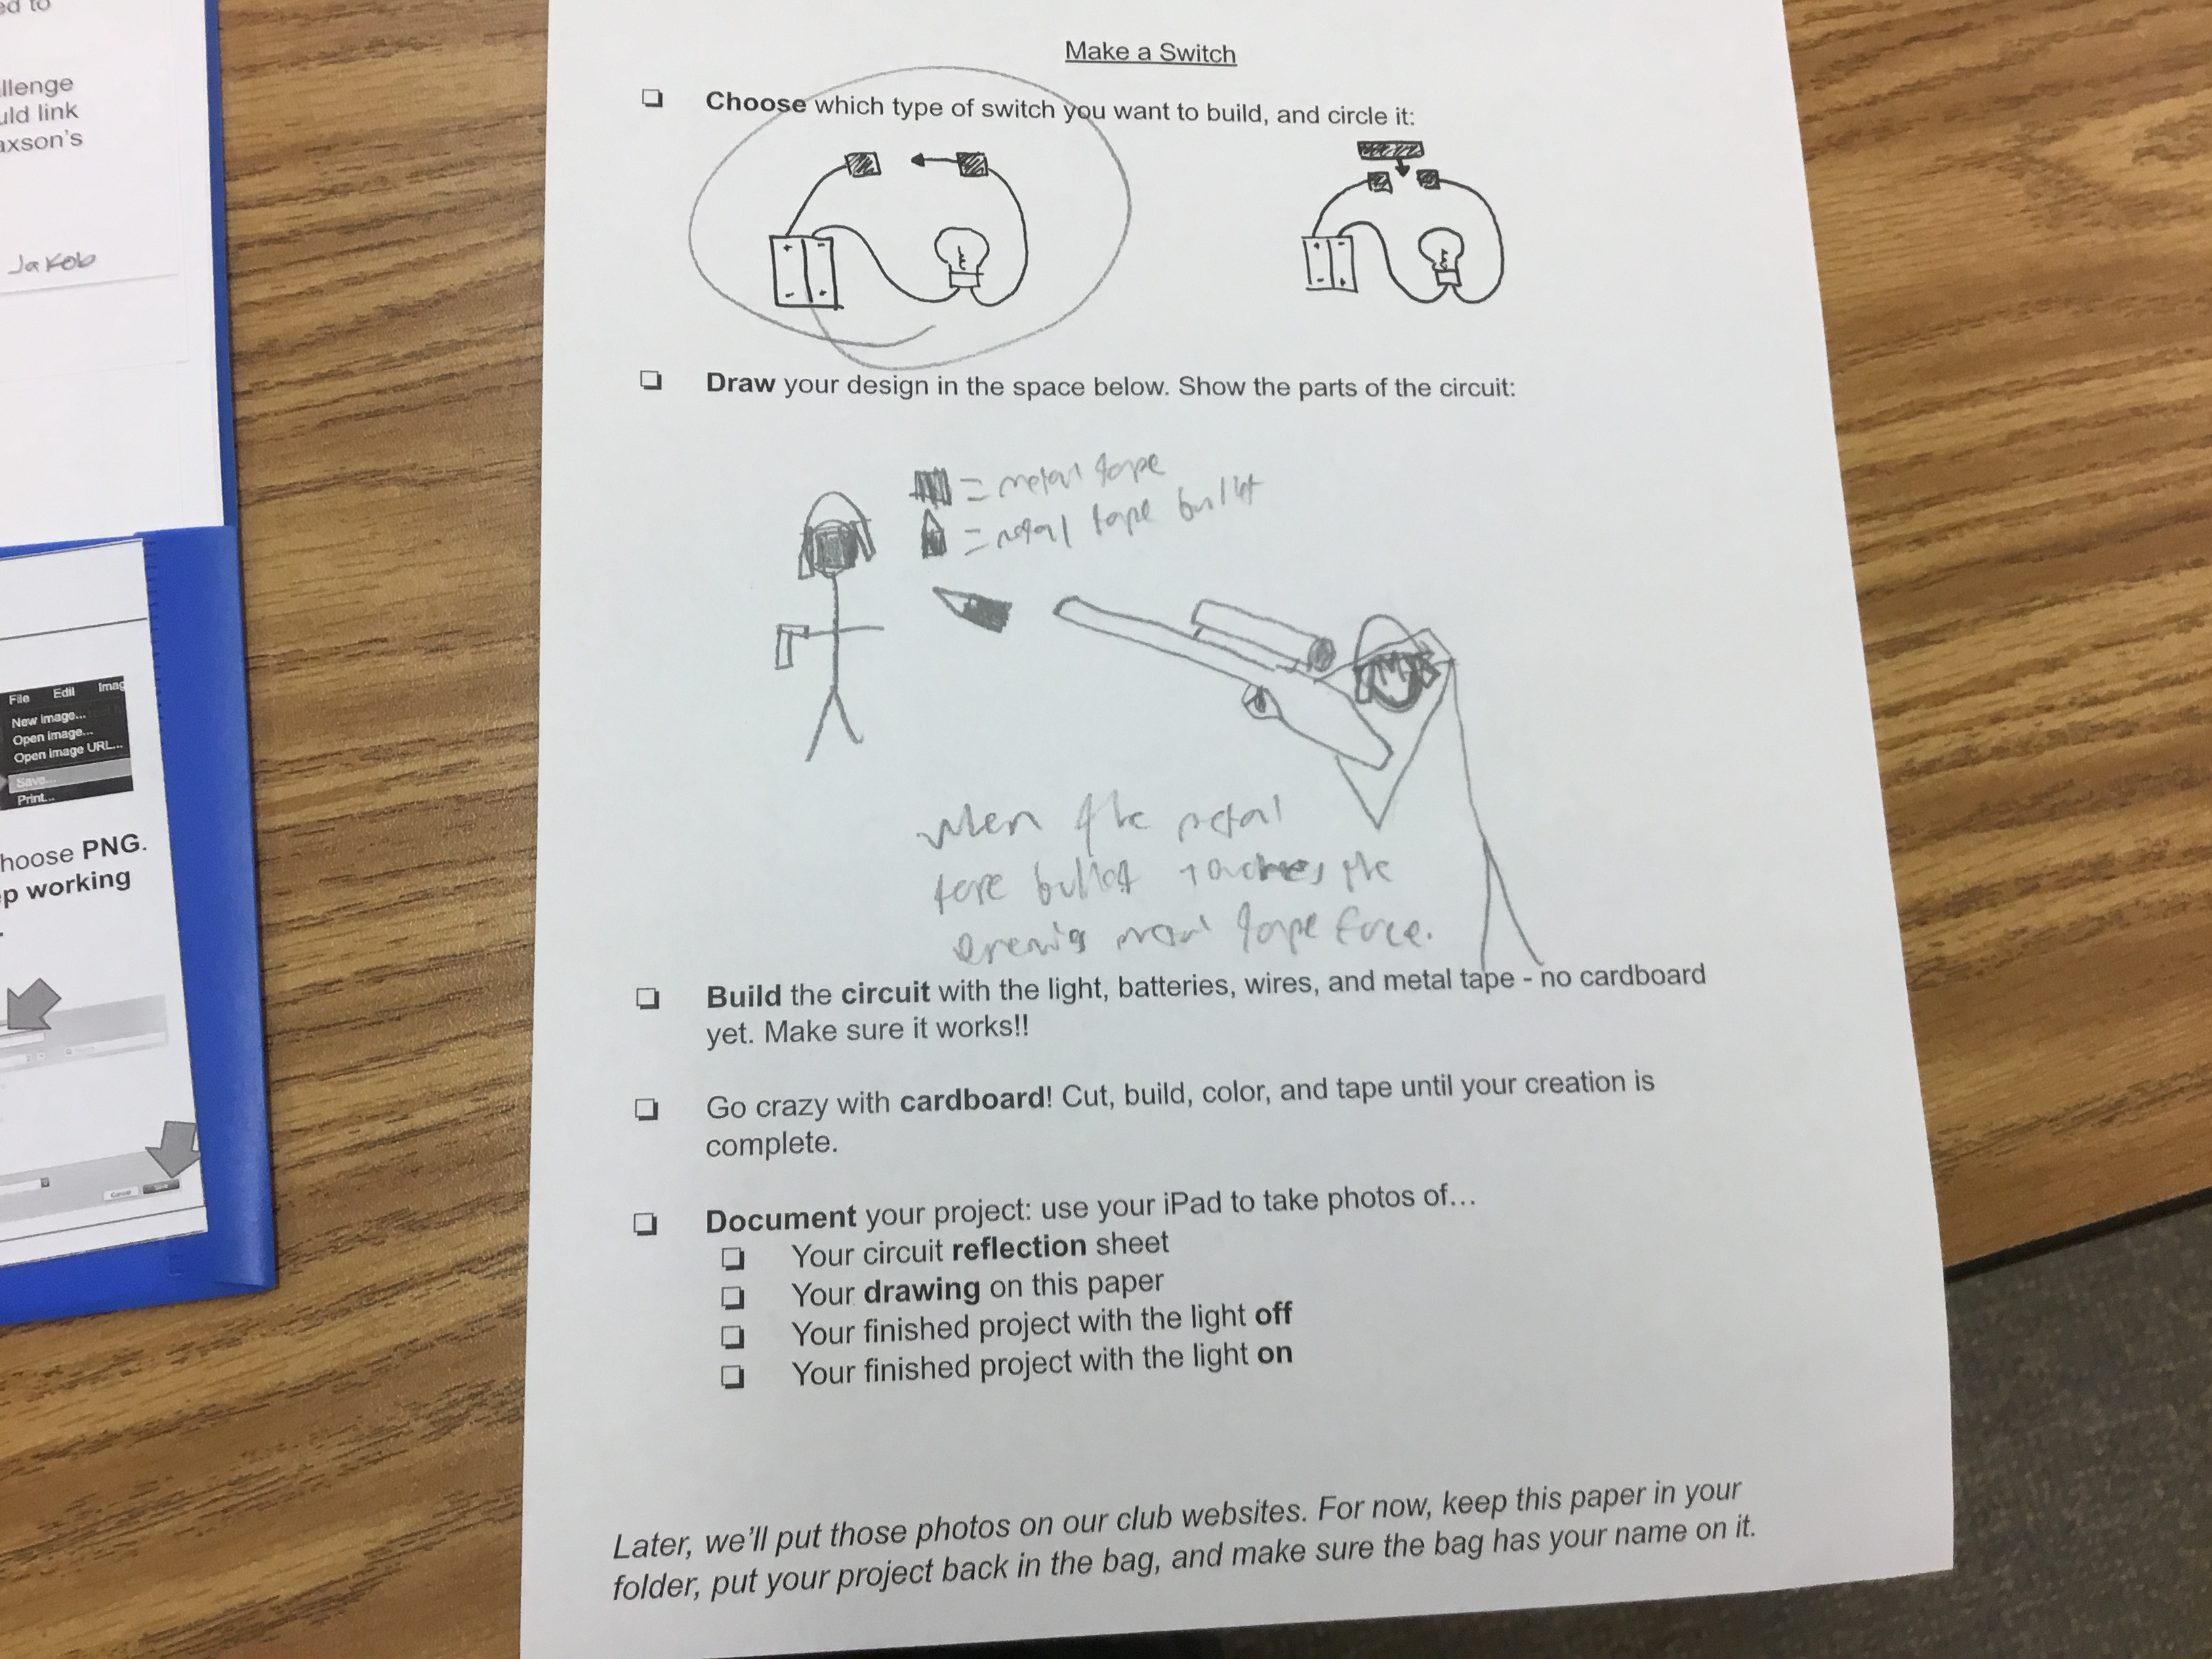 ed to
llenge
uld link
axson's
Jakob
File Edit Imag
New Image...
Open Image...
Open Image URL...
Save...
Print...
hoose PNG.
p working
Cancel
Make a Switch
Choose which type of switch you want to build, and circle it:
+ -
- +
+ -
- +
Draw your design in the space below. Show the parts of the circuit:
= metal tape
= metal tape bullet
when the metal
tape bullet touches the
metal tape face.
Build the circuit with the light, batteries, wires, and metal tape - no cardboard
yet. Make sure it works!!
Go crazy with cardboard! Cut, build, color, and tape until your creation is
complete.
Document your project: use your iPad to take photos of...
Your circuit reflection sheet
Your drawing on this paper
Your finished project with the light off
Your finished project with the light on
Later, we'll put those photos on our club websites. For now, keep this paper in your
folder, put your project back in the bag, and make sure the bag has your name on it.